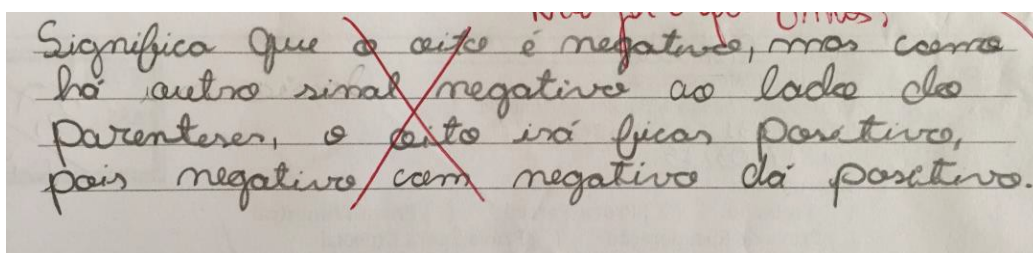 Significa que o oito é negativo, mas como
há outro sinal negativo ao lado do
parenteses, o oito irá ficar positivo,
pois negativo com negativo dá positivo.